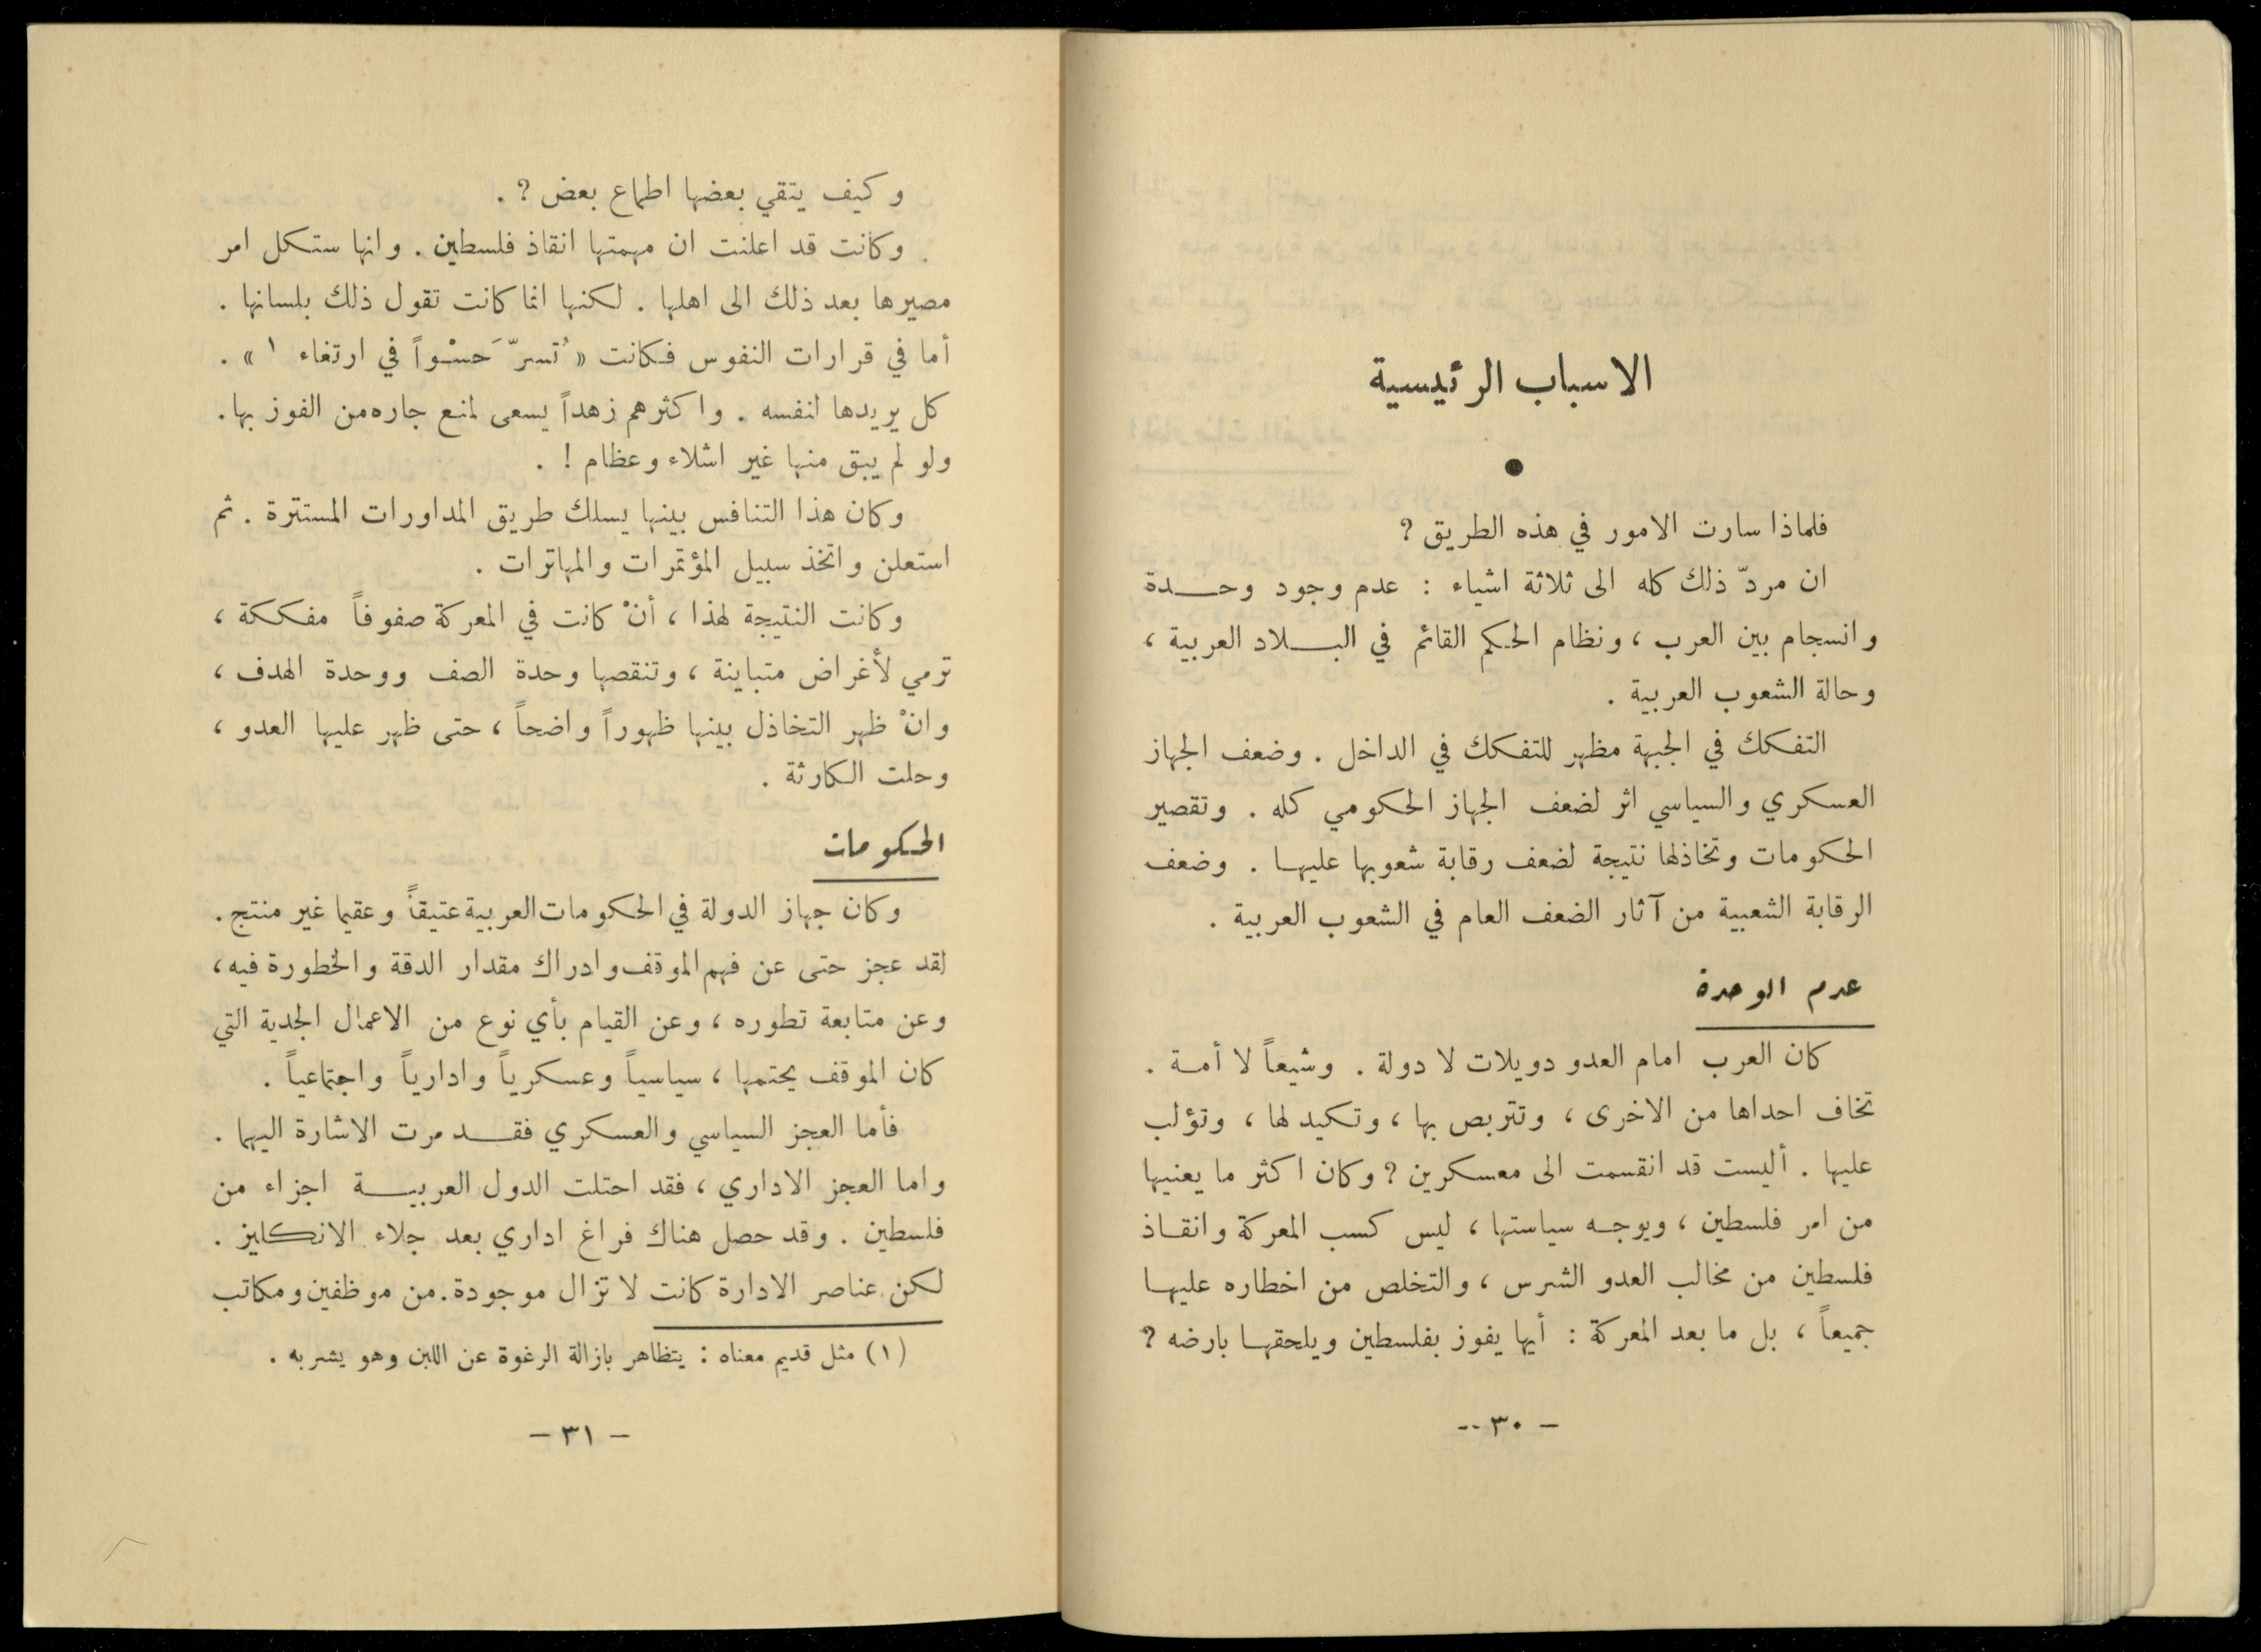 الاسباب الرئيسية
●
فلماذا سارت الامور في هذه الطريق ؟
ان مردّ ذلك كله الى ثلاثة اشياء : عدم وجود وحــدة
وانسجام بين العرب ، ونظام الحكم القائم في البــلاد العربية ،
وحالة الشعوب العربية .
التفكك في الجبهة مظهر للتفكك في الداخل . وضعف الجهاز
العسكري والسياسي اثر لضعف الجهاز الحكومي كله . وتقصير
الحكومات وتخاذلها نتيجة لضعف رقابة شعوبها عليهـا . وضعف
الرقابة الشعبية من آثار الضعف العام في الشعوب العربية .
عدم الوحدة
كان العرب امام العدو دويلات لا دولة . وشيعاً لا أمـة .
تخاف احداها من الاخرى ، وتتربص بها ، وتكيد لها ، وتؤلب
عليها . أليست قد انقسمت الى معسكرين ؟ وكان اكثر ما يعنيها
من امر فلسطين ، ويوجـه سياستها ، ليس كسب المعركة وانقـاذ
فلسطين من مخالب العدو الشرس ، والتخلص من اخطاره عليهـا
جميعاً ، بل ما بعد المعركة : أيها يفوز بفلسطين ويلحقهـا بارضه ؟
— ٣٠ --
وكيف يتقي بعضها اطماع بعض ؟ .
وكانت قد اعلنت ان مهمتها انقاذ فلسطين . وانها ستكل امر
مصيرها بعد ذلك الى اهلها . لكنها انما كانت تقول ذلك بلسانها .
أما في قرارات النفوس فكانت « تُسرّ حَسْواً في ارتغاء ١ » .
كل يريدها لنفسه . واكثرهم زهداً يسعى لمنع جاره من الفوز بها .
ولو لم يبق منها غير اشلاء وعظام ! .
وكان هذا التنافس بينها يسلك طريق المداورات المستترة . ثم
استعلن واتخذ سبيل المؤتمرات والمهاترات .
وكانت النتيجة لهذا ، أنْ كانت في المعركة صفوفاً مفككة ،
ترمي لأغراض متباينة ، وتنقصها وحدة الصف ووحدة الهدف ،
وانْ ظهر التخاذل بينها ظهوراً واضحاً ، حتى ظهر عليها العدو ،
وحلت الكارثة .
الحكومات
وكان جهاز الدولة في الحكومات العربية عتيقاً وعقيما غير منتج .
لقد عجز حتى عن فهم الموقف وادراك مقدار الدقة والخطورة فيه ،
وعن متابعة تطوره ، وعن القيام بأي نوع من الاعمال الجدية التي
كان الموقف يحتمها ، سياسياً وعسكرياً وادارياً واجتماعياً .
فأما العجز السياسي والعسكري فقــد مرت الاشارة اليهما .
واما العجز الاداري ، فقد احتلت الدول العربيــة اجزاء من
فلسطين . وقد حصل هناك فراغ اداري بعد جلاء الانكليز .
لكن عناصر الادارة كانت لا تزال موجودة . من موظفين ومكاتب
(١) مثل قديم معناه : يتظاهر بازالة الرغوة عن اللبن وهو يشربه .
— ٣١ —